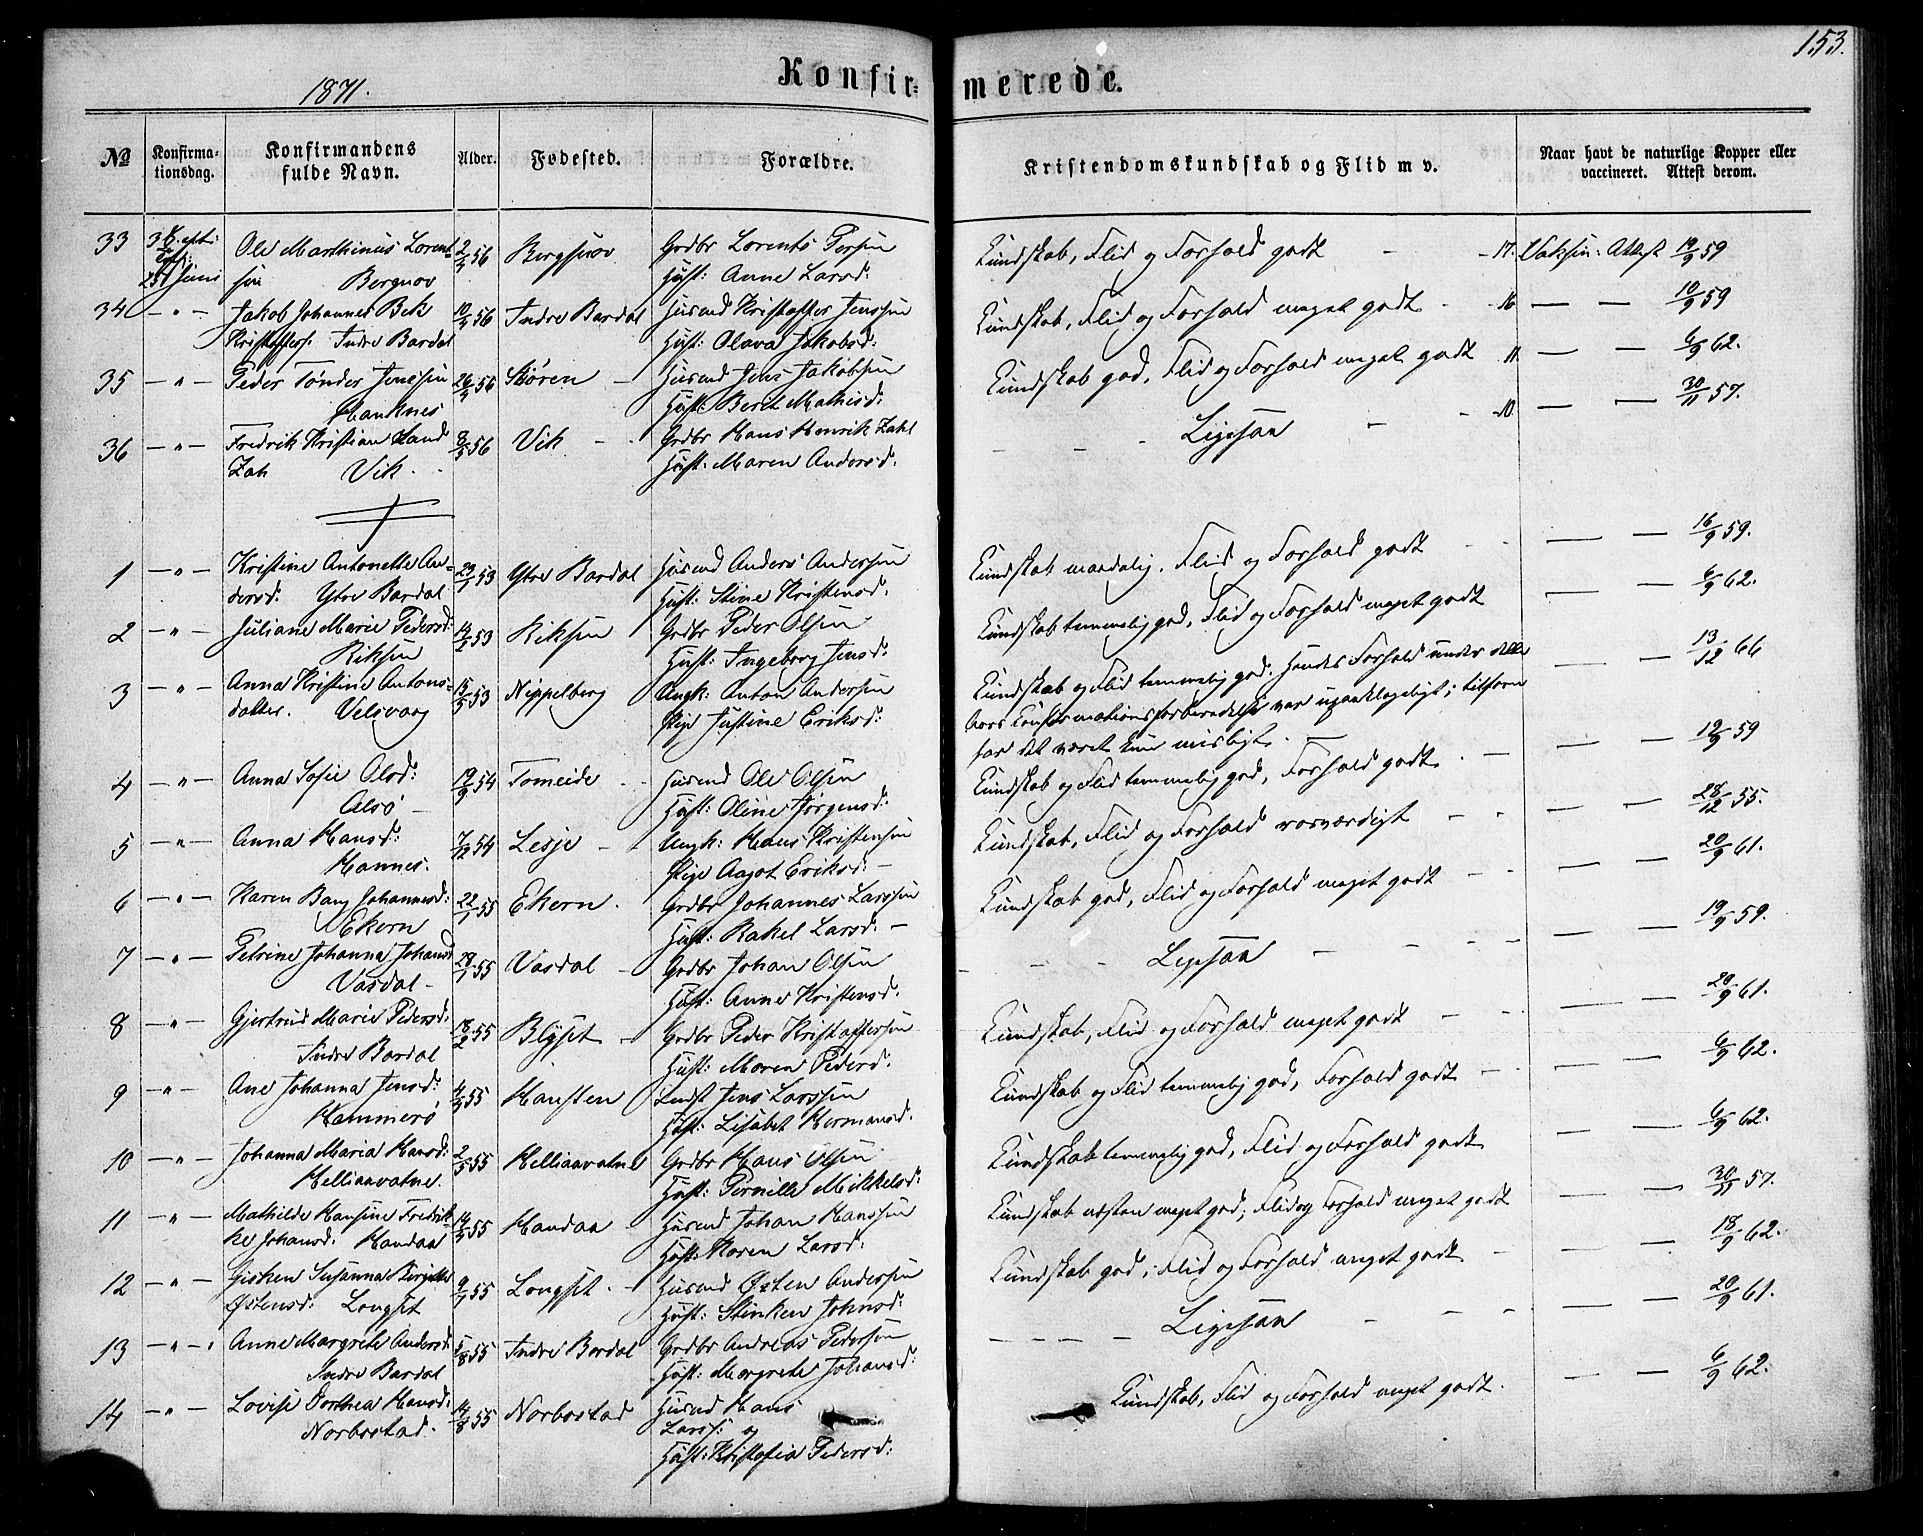 153.
1871.
Konfir=
merede.
No
Konfirma=
tionsdag.
Konfirmandens
fulde Navn.
Alder.
Fødested.
Forældre.
Kristendomskundskab og Flid m v.
Naar havt de naturlige Kopper eller
vaccineret. Attest derom.
33 Ole Marthinus Lorent= 2/4 56 Grdbr Lorents Persen Kundskab, Flid og Forhold godt - - 17. Vaksin: Attest 19/9 59
25 Juni sen Hust: Anne Larsd:
34 — " — Jakob Johannes Bek 10/4 56 Indre Bardal Husmd Kristoffer Jenssen Kundskab, Flid og Forhold meget godt - 16 — — 10/9 59
Kristoffers. Indre Bardal Hust: Olava Jakobsd:
35 — " — Peder Tønder Jenssen 26/4 56 Husmd Jens Jakobsen Kundskab god, Flid og Forhold meget godt 11 — — 6/9 62.
Hust: Beret Mathisd:
36 — " — Fredrik Kristian 8/5 56 Vik Grdbr Hans Henrik Zahl Ligesaa - 10 — — 30/11 57.
Zah Vik Hust: Maren Andersd.
1 — " — Kristine Antonette An= 29/1 53 Ytre Bardal Husmd Anders Andersen Kundskab maadelig. Flid og Forhold godt - - — — 16/9 59.
dersd. Ytre Bardal Hust: Stine Kristensd.
2 — " — Juliane Marie Pedersd: 53 Riksen Grdbr Peder Olsen Kundskab temmelig god, Flid og Forhold meget godt — — 6/9 62.
Riksen Hust: Ingeborg Jensd:
3 — " — Anna Kristine Antons= 15/5 53 Nippelberg Ungk: Anton Andersen Kundskab og Flid temmelig god. Hendes Forhold under dette — — 13/12 66
datter. Velsvaag Pige Justine Eriksd: Aars Konfirmationsforberedelse var upaaklageligt; tilforn
har det været kun misligt. —
4 — " — Anna Sofie Olsd: 19/9 54 Tomeide Husmd Ole Olsen Kundskab og Flid temmelig god, Forhold godt. — — — 19/9 59
Alsø — Hust: Oline Jørgensd:
5 — " — Anna Hansd: 7/12 54 Lesje — Ungk: Hans Kristensen Kundskab, Flid og Forhold rosværdigt - - — — 28/12 55.
Hannes. Pige Aagot Eriksd: —
6 — " — Karen Bang Johannesd: 22/1 55 Ekern. Grdbr Johannes Larssen Kundskab god, Flid og Forhold meget godt - - — — 20/9 61.
Ekern Hust: Rakel Larsd. —
7 — " — Petrine Johanna Johansd 28/1 55 Vasdal — Grdbr Johan Olsen Ligesaa - - - 19/9 59.
Vasdal — Hust: Anne Kristensd.
8 — " — Gjertrud Marie Pedersd. 18/2 55 Blyset — Grdbr Peder Kristoffersen Kundskab, Flid og Forhold meget godt - - — — 20/9 61.
Indre Bardal Hust: Maren Pedersd.
9 — " — Ane Johanna Jensd: 4/4 55 Hansten Jens Larssen Kundskab og Flid temmelig god, Forhold godt - - — — 6/9 62.
Hammerø Hust: Lisabet Hermansd.
10 — " — Johanna Maria Hansd: 2/5 55 Helliaavatne Grdbr Hans Olsen Kundskab temmelig god, Flid og Forhold godt — — 6/9 62.
Helliaavatne. Hust: Pernille Mikkelsd:
11 — " — Mathilde Hansine Fredrik= 14/5 55 Handaa Husmd Johan Hanssen Kundskab næsten meget god; Flid og Forhold meget godt — — 30/11 57.
ke Johansd: Handaa Hust: Karen Larsd:
12 — " — Gjsken Susanna Birgitte 9/7 55 Longset — Husmd Østen Andersen Kundskab god; Flid og Forhold meget godt - — — 18/9 62.
Østensd: Longset Hust: Stinken Johnsd:
13 — " — Anne Margrete Andersd: 5/8 55 Indre Bardal Grdbr Andreas Pedersen — — — — Ligesaa - - - — — 20/9 61.
Indre Bardal Hust: Margrete Johansd:
14 — " — Lovise Dorthea Hansd: 14/8 55 Norbostad Husmd Hans Kundskab, Flid og Forhold meget godt. — — 6/9 62.
Norbostad. Larss: og
Hust: Kristofia Pedersd: